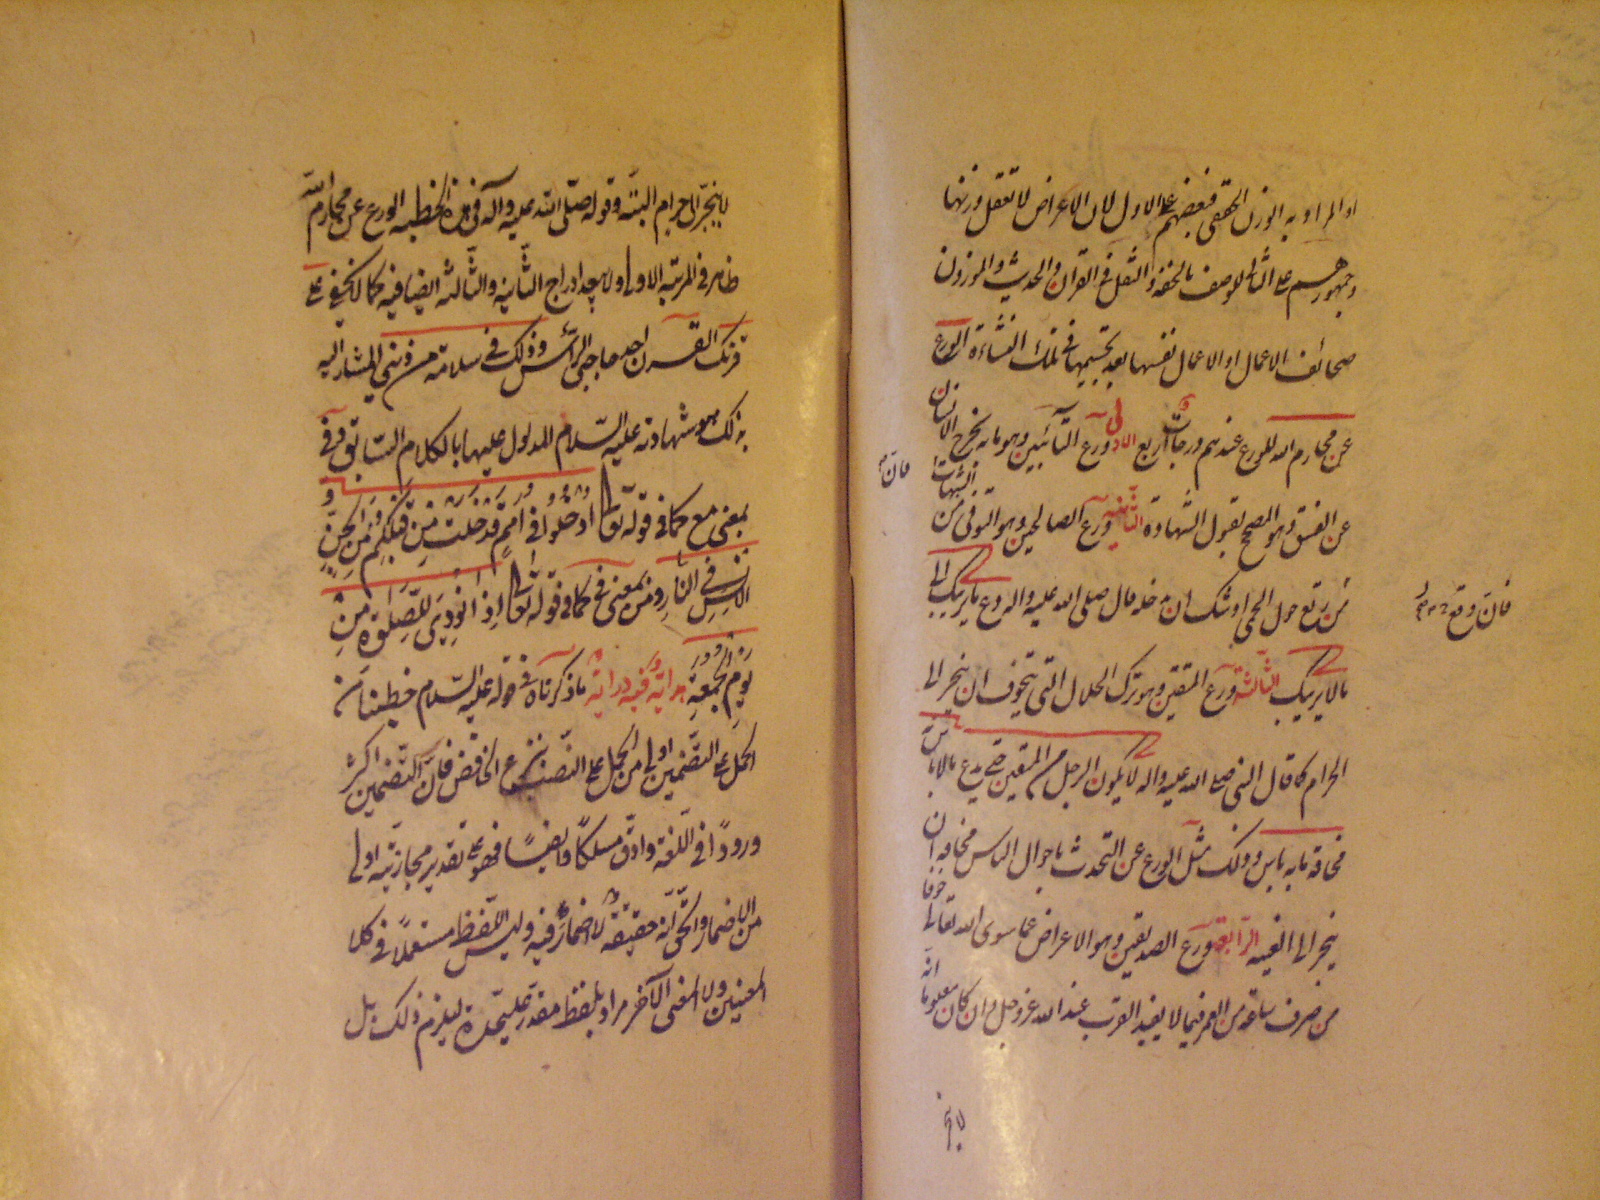 او المراد به الوزن الحقيقى فبعضهم على الاول لان الاعراض لا تعقل وزنها
وجمهورهم على الثانى للوصف بالخفة والثقل فى القران والحديث والموزون
صحائف الاعمال او الاعمال نفسها بعد تجسيمها فى تلك النشاءة الورع
عن محارم الله للورع عندهم درجات اربع الاولى ورع التائبين وهو ما به يخرج الانسان
عن الفسق وهو المصحح لقبول الشهادة الثانية ورع الصالحين وهو التوقى من الشبهات
فان
فمن رتع حول الحمى اوشك ان يدخله قال صلى الله عليه واله دع ما يريبك الى
ما لا يريبك الثالثة ورع المتقين وهو ترك الحلال التى يتخوف ان ينجر الى
الحرام كما قال النبى صلى الله عليه واله لا يكون الرجل من المتقين حتى يدع ما لا باس
مخافة ما به باس وذلك مثل الورع عن التحدث باحوال الناس مخافة ان
ينجر الى الغيبة الرابعة ورع الصديقين وهو الاعراض عما سوى الله تعالى خوفا
من صرف ساعة من العمر فيما لا يفيد القرب عند الله عز وجل وان كان معلوما انه
لا ينجر
لا ينجرّ الى حرام البتّه وقوله صلّى الله عليه وآله فى هذه الخطبه الورع عن محارم الله
ظاهر فى المرتبة الاولى ولا يبعد ادراج الثّانية والثّالثه ايضا فيه كما لا يخفى على
قرنك القرن احد حاجبى الرأس وذلك فى سلامة من دينى المشار اليه
بذلك هو شهادته عليه السّلام المدلول عليها بالكلام السّابق وفى
بمعنى مع كما فى قوله تعالى ادخلوا فى امم قد خلت من قبلكم من الجنّ و
الانس فى النّار ومن بمعنى فى كما فى قوله تعالى اذا نودى للصّلوة من
يوم الجمعة هداية وفيه دراية ما ذكرناه فى قوله عليه السّلام خطبنا من
الحمل على التّضمين اولى من الحمل على النّصب بنزع الخافض فانّ التّضمين اكثر
ورودًا فى اللّغة وادقّ مسلكًا وفهو على تقدير مجازيّته اولى
من الاضمار والحقّ انّه حقيقة لا اضمار فيه وليس اللّفظ مستعملًا فى كلا
المعنيين ولا المعنى الآخر مراد بلفظ مقدّر عليحدة ليلزم ذلك بل